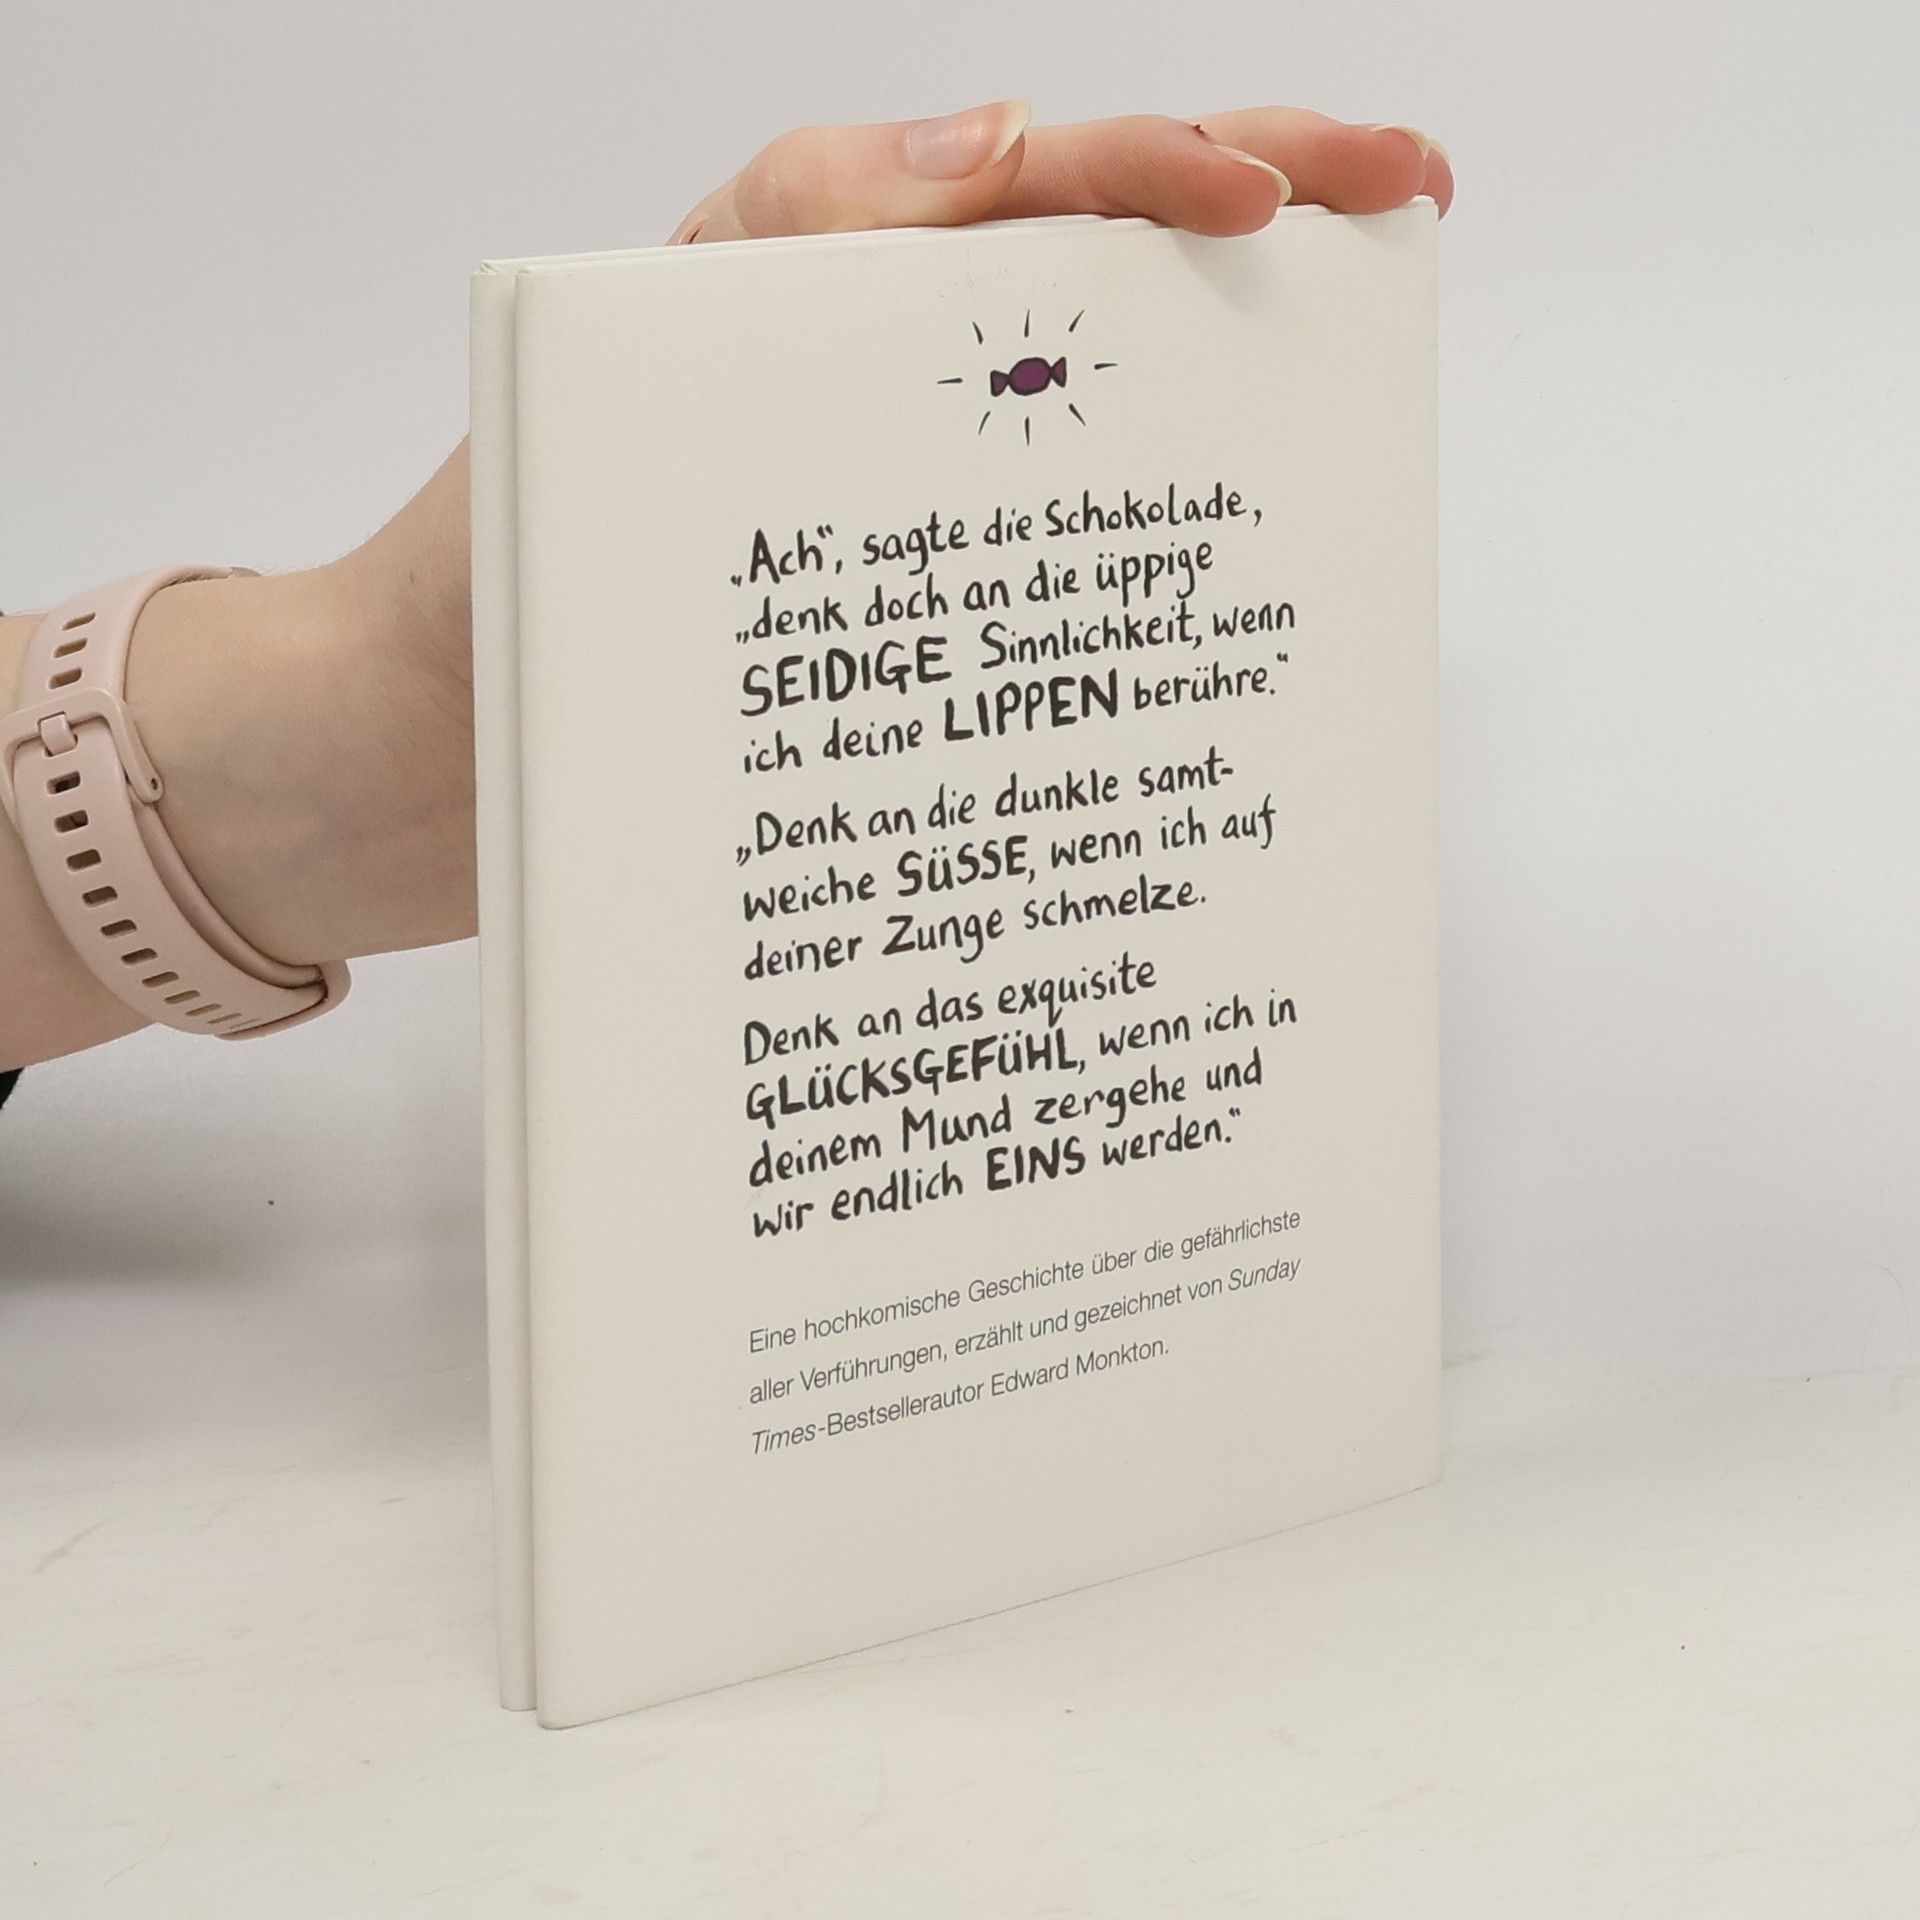 „Ach“, sagte die Schokolade,
„denk doch an die üppige
SEIDIGE Sinnlichkeit, wenn
ich deine LIPPEN berühre.“
„Denk an die dunkle samt-
weiche SÜSSE, wenn ich auf
deiner Zunge schmelze.
Denk an das exquisite
GLÜCKSGEFÜHL, wenn ich in
deinem Mund zergehe und
wir endlich EINS werden.“
Eine hochkomische Geschichte über die gefährlichste
aller Verführungen, erzählt und gezeichnet von Sunday
Times-Bestsellerautor Edward Monkton.